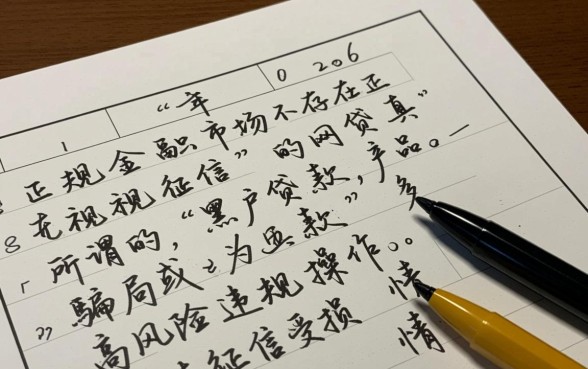 “年 0 206
1
正规金融市场不存在正
8无视视征信”的网贷真”
「所谓的,“黑户贷款”,产品。一
”骗局或 为 款”, 多
高风险违规操作。。情
征信受损 情